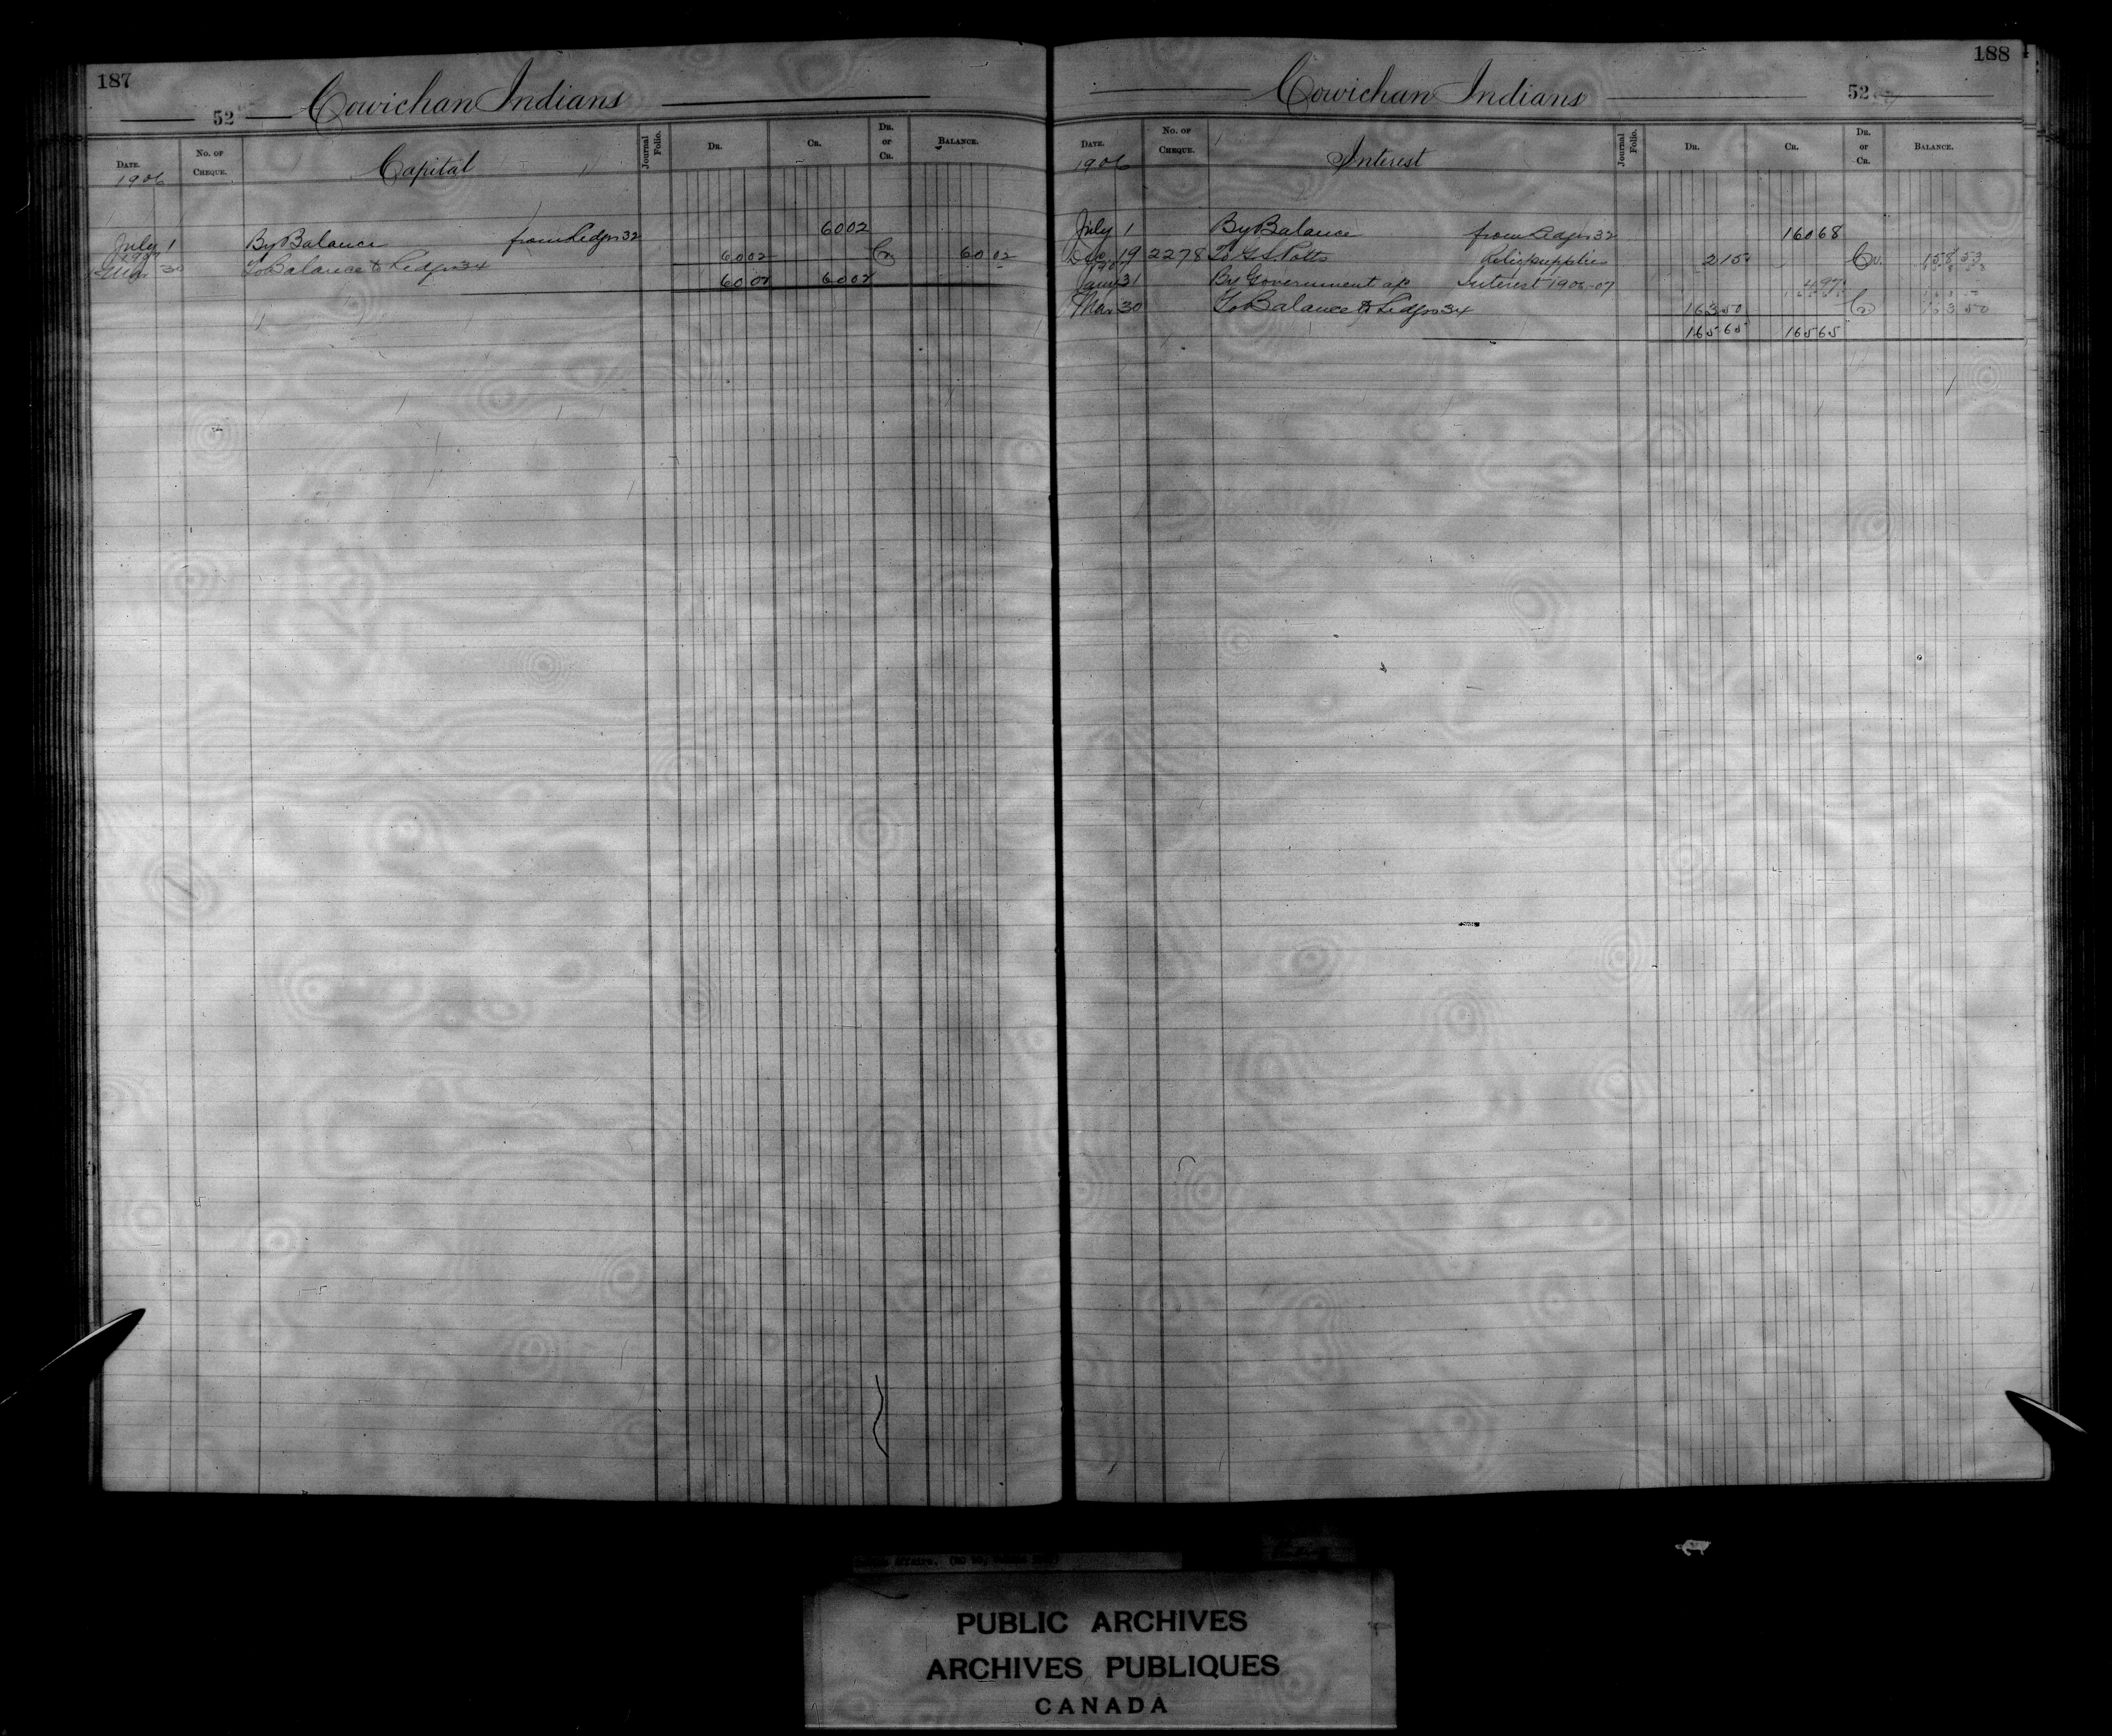 187
52 Cowichan Indians
DATE. No. OF CHEQUE. Capital Journal Folio. DR. CR. DR. or CR. BALANCE.
1906
July 1 By Balance from Ledger 32 60 02
1907
Mar 30 To Balance to Ledger 34 60 02 Cr 60 02
60 02 60 02
188
Cowichan Indians 52
DATE. No. OF CHEQUE. Interest Journal Folio. DR. CR. DR. or CR. BALANCE.
1906
July 1 By Balance from Ledger 32 160 68
Dec 19 2278 To G S Potts Relief supplies 2 15 Cr. 158 53
1907
Jany 31 By Government a/c Interest 1906-07 4 97
Mar 30 To Balance to Ledger 34 163 50 Cr 163 50
165 65 165 65
PUBLIC ARCHIVES
ARCHIVES PUBLIQUES
CANADA